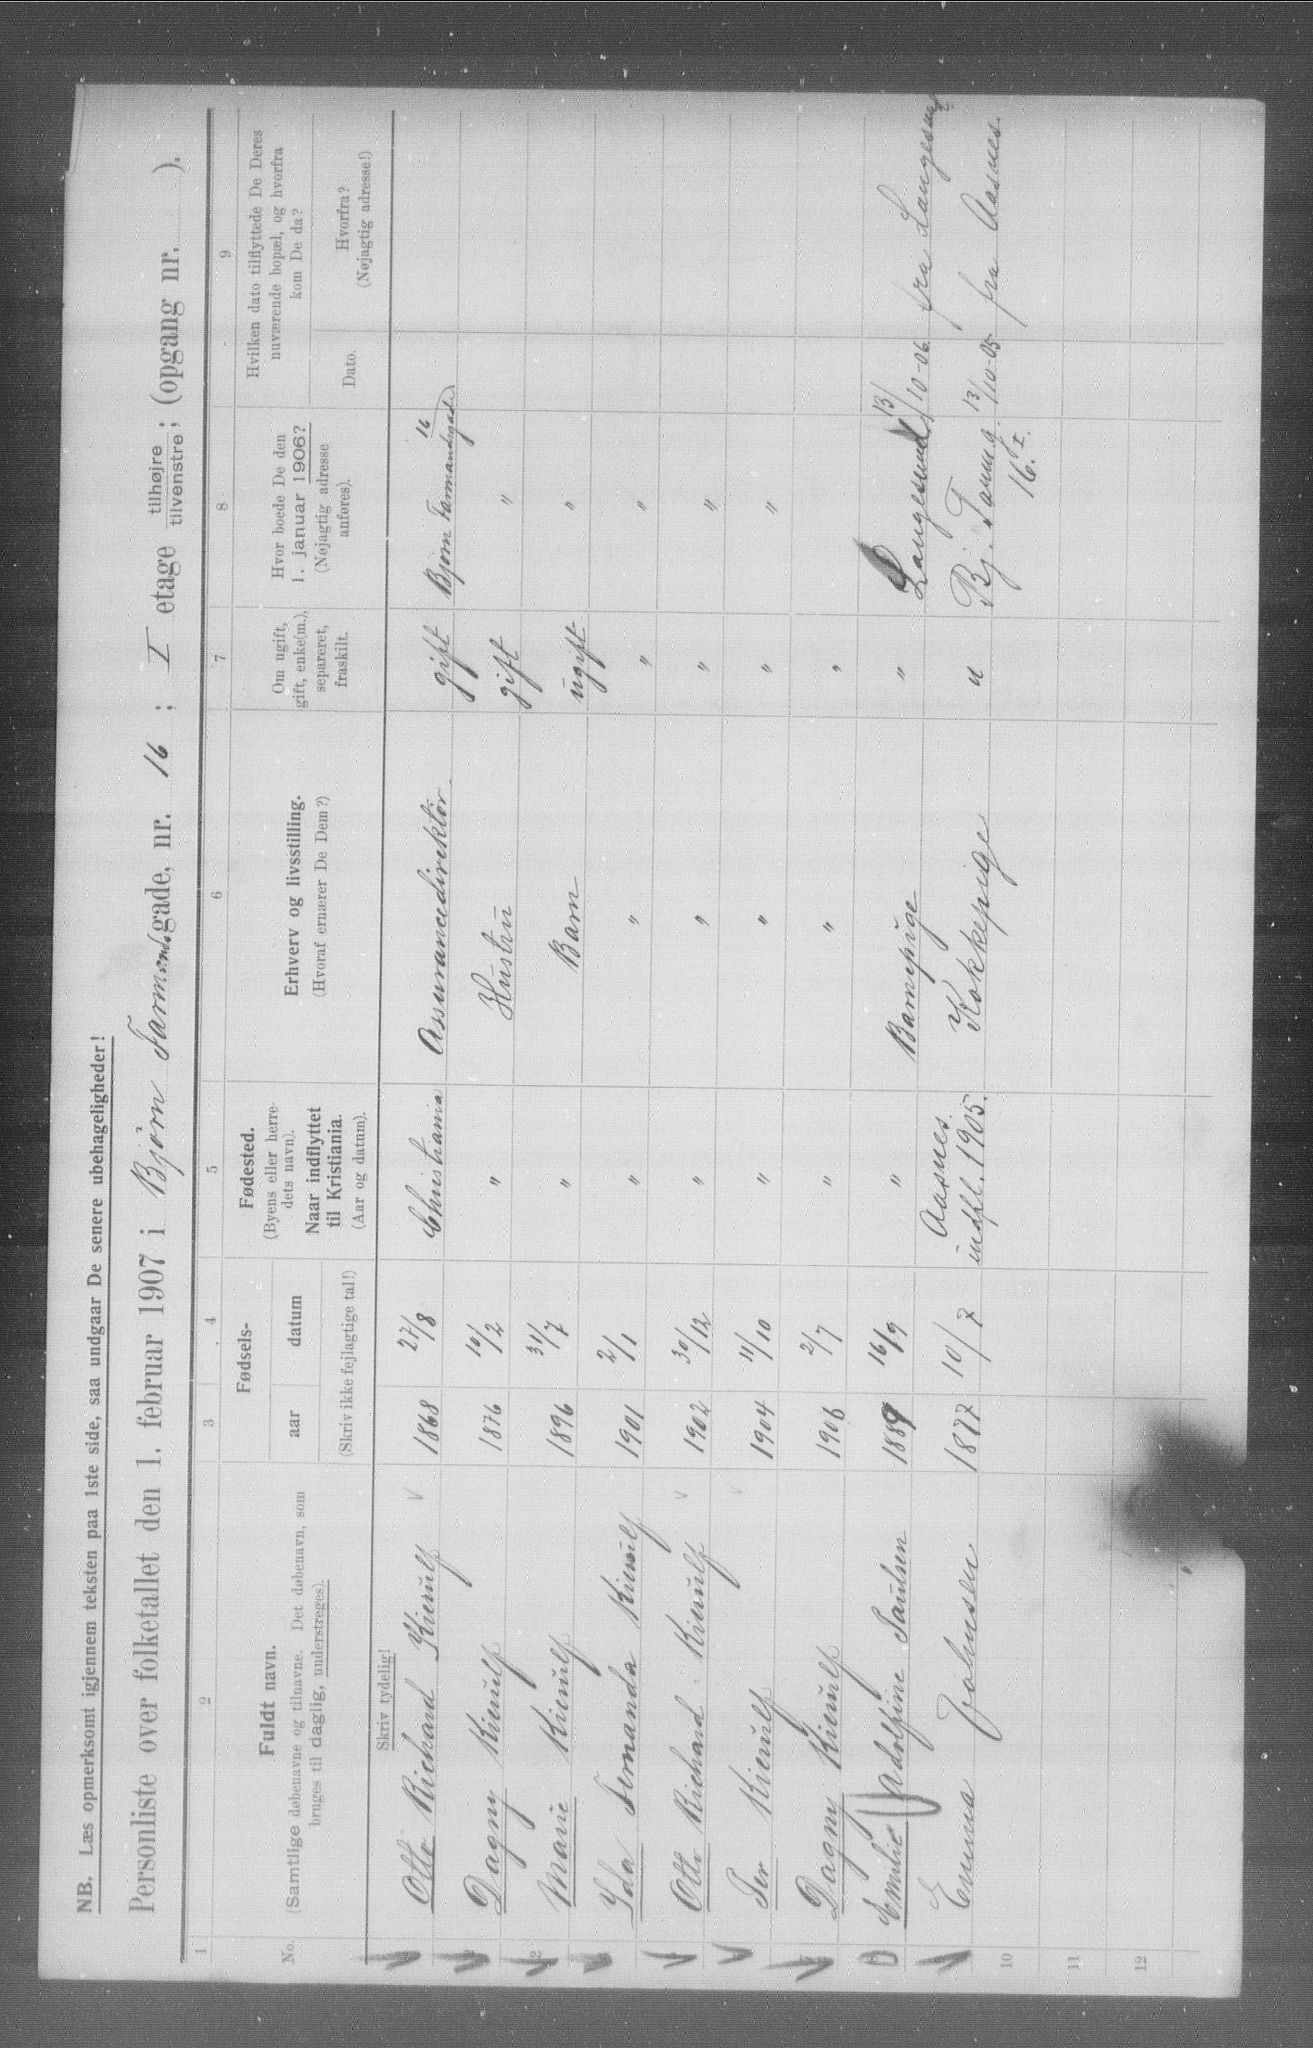 NB. Læs opmerksomt igjennem teksten paa 1ste side, saa undgaar De senere ubehageligheder!
Personliste over folketallet den 1. februar 1907 i Bjørn Farmands gade, nr. 16; I etage tilhøjre tilvenstre; (opgang nr. ).
1 2 3 4 5 6 7 8 9
No. Fuldt navn. (Samtlige døbenavne og tilnavne. Det døbenavn, som bruges til daglig, understreges). Fødsels- aar datum (Skriv ikke fejlagtige tal!) Fødested. (Byens eller herredets navn). Naar indflyttet til Kristiania. (Aar og datum). Erhverv og livsstilling. (Hvoraf ernærer De Dem?) Om ugift, gift, enke(m.), separeret, fraskilt. Hvor boede De den 1. januar 1906? (Nøjagtig adresse anføres). Hvilken dato tilflyttede De Deres nuværende bopæl, og hvorfra kom De da? Dato. Hvorfra? (Nøjagtig adresse!)
Skriv tydelig!
Otto Richard Kierulf 1868 27/8 Christiania Assurancedirektör gift Bjørn Farmandsgade 16
Dagny Kierulf 1876 10/2 " Hustru gift "
Marie Kierulf 1896 31/7 " Barn ugift "
Ida Fernanda Kierulf 1901 2/1 " " " "
Otto Richard Kierulf 1902 30/12 " " " "
Per Kierulf 1904 11/10 " " " "
Dagny Kierulf 1906 2/7 " " "
Emilie Adolfine Paulsen 1889 16/9 " Barnepige " Langesund 13/10-06 fra Langesund
Emma Johnsen 1877 10/7 Aasnes indfl. 1905. Kokkepige u Bj. Farm.g. 16. I. 13/10-05 fra Aasnes.
10
11
12